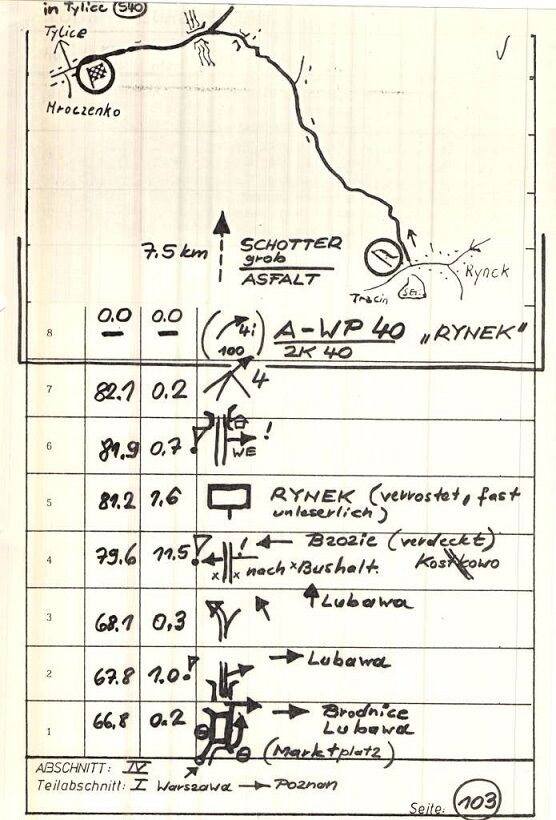 in Tylice (540)
Tylice
Mroczenko
7.5 km SCHOTTER
grob
ASFALT
Rynek
Tracin
See
8 0.0 0.0 4i 100 A-WP 40 „RYNEK“
2K 40
7 82.1 0.2 4
6 81.9 0.7 ! WE
5 81.2 1.6 RYNEK (verrostet, fast
unleserlich)
4 79.6 11.5 ! Bzozie (verdeckt)
nach Bushalt.
3 68.1 0.3 Lubawa
2 67.8 1.0 Lubawa
1 66.8 0.2 Brodnice
Lubawa
(Marktplatz)
ABSCHNITT: IV
Teilabschnitt: I Warszawa → Poznan
Seite: 103